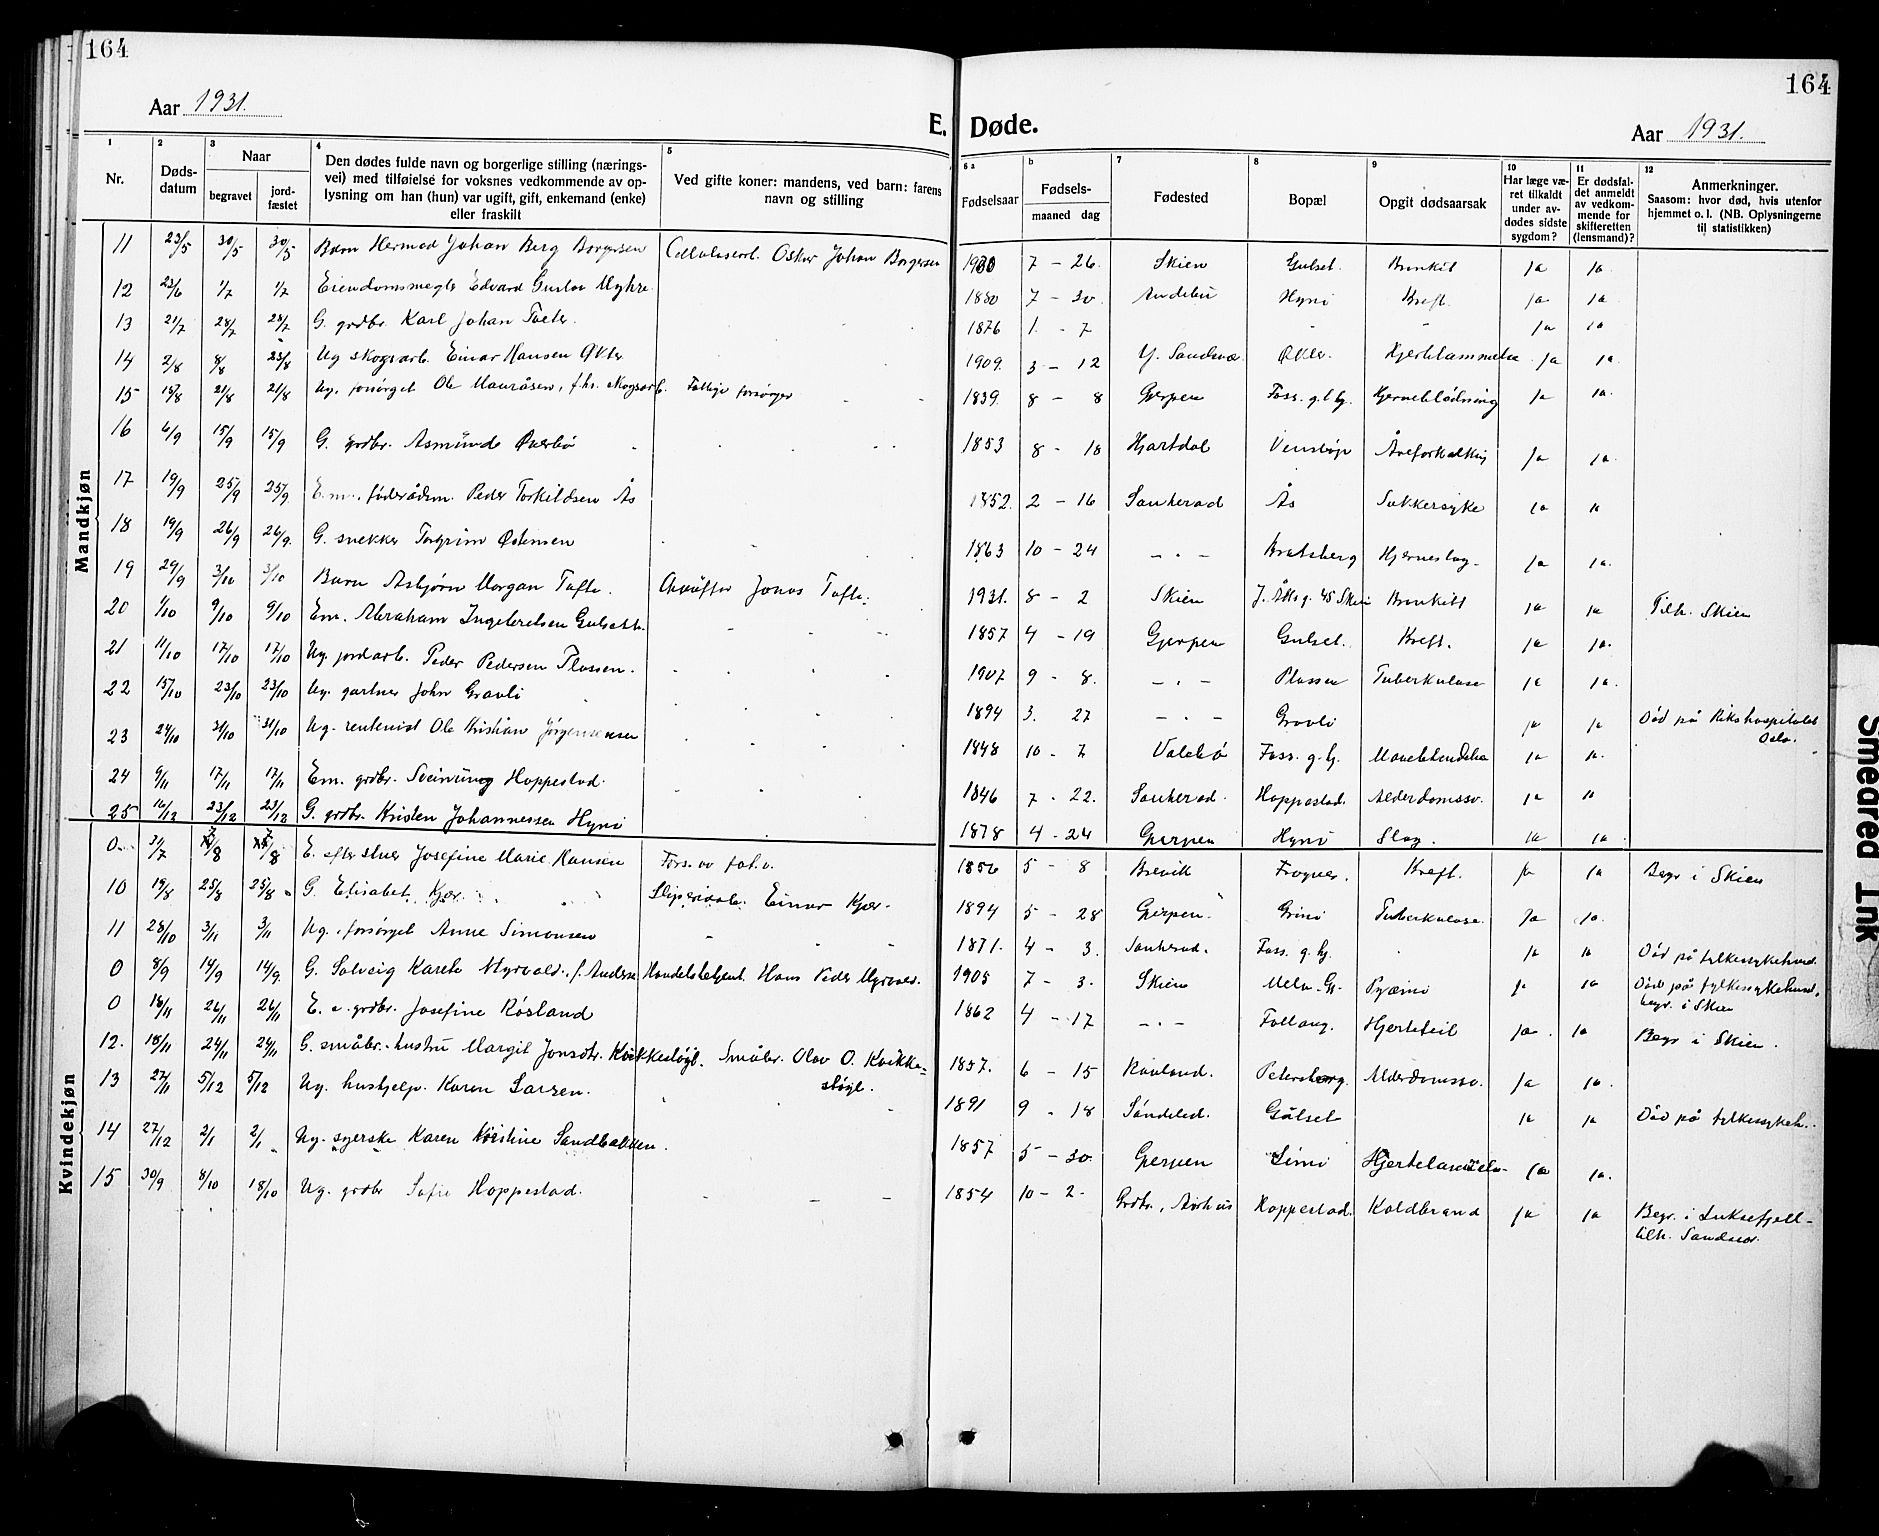 164
Aar 1931.
E. Døde.
Aar 1931.
164
1 2 3 4 5
Nr.
Døds-
datum
Naar
begravet
jord-
fæstet
Den dødes fulde navn og borgerlige stilling (nærings-
vei) med tilføielse for voksnes vedkommende av op-
lysning om han (hun) var ugift, gift, enkemand (enke)
eller fraskilt
Ved gifte koner: mandens, ved barn: farens
navn og stilling
6 a b 7 8 9 10 11 12
Fødselsaar
Fødsels-
maaned dag
Fødested
Bopæl
Opgit dødsaarsak
Har læge væ-
ret tilkaldt
under av-
dødes sidste
sygdom?
Er dødsfal-
det anmeldt
av vedkom-
mende for
skifteretten
(lensmand)?
Anmerkninger.
Saasom: hvor død, hvis utenfor
hjemmet o. l. (NB. Oplysningerne
til statistikken)
Mandkjøn
11 23/5 30/5 30/5 Barn Hermod Johan Berg Borgersen Cellulosearb. Oskar Johan Borgersen 1930 7 - 26. Skien Gulset. Bronkit ja ja
12 23/6 1/7 1/7 Eiendomsmegler Edvard Gustav Myhre 1880 7 - 30. Andebu Hyni Kreft. ja ja
13 21/7 28/7 28/7 G. grdbr. Karl Johan 1876 1. - 7 ja ja
14 2/8 8/8 23/8 Ug skogsarb. Einar Hansen Økter 1909. 3 - 12 Økter. Hjertelammelse ja ja.
15 15/8 21/8 21/8 Ug. forsørget Ole f.hv. skogsarb. forsørger 1839. 8 - 8 Gjerpen Foss. g.l.hj. Hjerneblødning ja ja.
16 6/9 15/9 15/9 G. grdbr. Asmund Øverbø 1853 8 - 18 Hjartdal Venstøp Åreforkalkning ja ja.
17 19/9 25/9 25/9 E.m. føderådsm. Peder Torkildsen Ås 1852. 2 - 16 Sauherad Ås Sukkersyke ja ja
18 19/9 26/9 26/9. G. snekker Torgrim Østensen 1863 10 - 24 - " - Bratsberg Hjerneslag. ja ja.
19 29/9 3/10 3/10 Barn Asbjørn Morgan Tufte. Chauffør Jonas Tufte. 1931. 8 - 2 Skien 45 Skien Bronkitt ja ja Tilh. Skien
20 1/10 9/10 9/10 Em. Abraham Ingebretsen 1857 4 - 19 Gjerpen Gulset. Kreft. ja ja.
21 11/10 17/10 17/10 Ug. jordarb. Peder Pedersen Plassen. 1907 9 - 8. - " - Plassen Tuberkulose ja ja.
22 15/10 23/10 23/10 Ug. gartner John Gravli 1894 3. 27 - " - Gravli ja ja Død på Rikshospitalet
Oslo.
23 24/10 31/10 31/10 Ug. rentenist Ole Kristian Jørgensen 1848 10 - 7 Valebø Foss. g.hj. ja ja.
24 9/11 17/11 17/11 Em. grdbr. Sveinung Hoppestad. 1846 7 - 22. Sauherad. Hoppestad. Alderdomssv. ja ja
25 16/12 23/12 23/12 G. grdbr. Kristen Johannessen Hyni 1878 4 - 24 Gjerpen Hyni Slag. ja ja.
Kvindekjøn
0 31/7 7/8 7/8 E. efter Josefine Marie Hansen Fors. av fat.v. 1856 5 - 8 Brevik Frogner. Kreft. ja ja Begr i Skien
10 19/8 25/8 25/8 G. Elisabet Kjær. Einar Kjær. 1894 5 - 28 Gjerpen. Grini Tuberkulose. ja ja.
11 28/10 3/11 3/11 Ug. forsørget Anne Simonsen 1871. 4 - 3. Sauherad. Foss. g. hj. ja ja Død på fylkessykehus.
0 8/9 14/9 14/9 G. Solveig Karete Myrvold. f. Anderse Handelsbetjent Hans Peder Myrvold. 1905 7 - 3. Skien Pyæmi ja ja Død på fylkessykehuset,
begr. i Skien
0 18/11 26/11 26/11 E. e. grdbr. Josefine Røsland 1862 4 - 17 - " - Follaug. Hjertefeil ja. ja Begr i Skien.
12. 18/11 24/11 24/11 G. småbr. hustru Margit Jonsdtr. Kvikkestøyl. Småbr. Olav O. Kvikke=
støyl. 1857. 6 - 15 Rauland. Petersborg. Alderdomssv. ja ja.
13 27/11 5/12 5/12 Ug. hushjelp. Karen Larsen. 1891 9 - 18 Søndeled. Gulset ja ja Død på fylkessykeh.
14 27/12 2/1 2/1 Ug. syerske Karen Kristine Sandbakken. 1857 5 - 30. Gjerpen Limi ja ja.
15 30/9 8/10 18/10 Ug. grdbr Sofie Hoppestad. 1854 10 - 2. Hoppestad. Koldbrand ja ja Begr. i Luksefjell -
tilh. Sandvær.
Smeared Ink